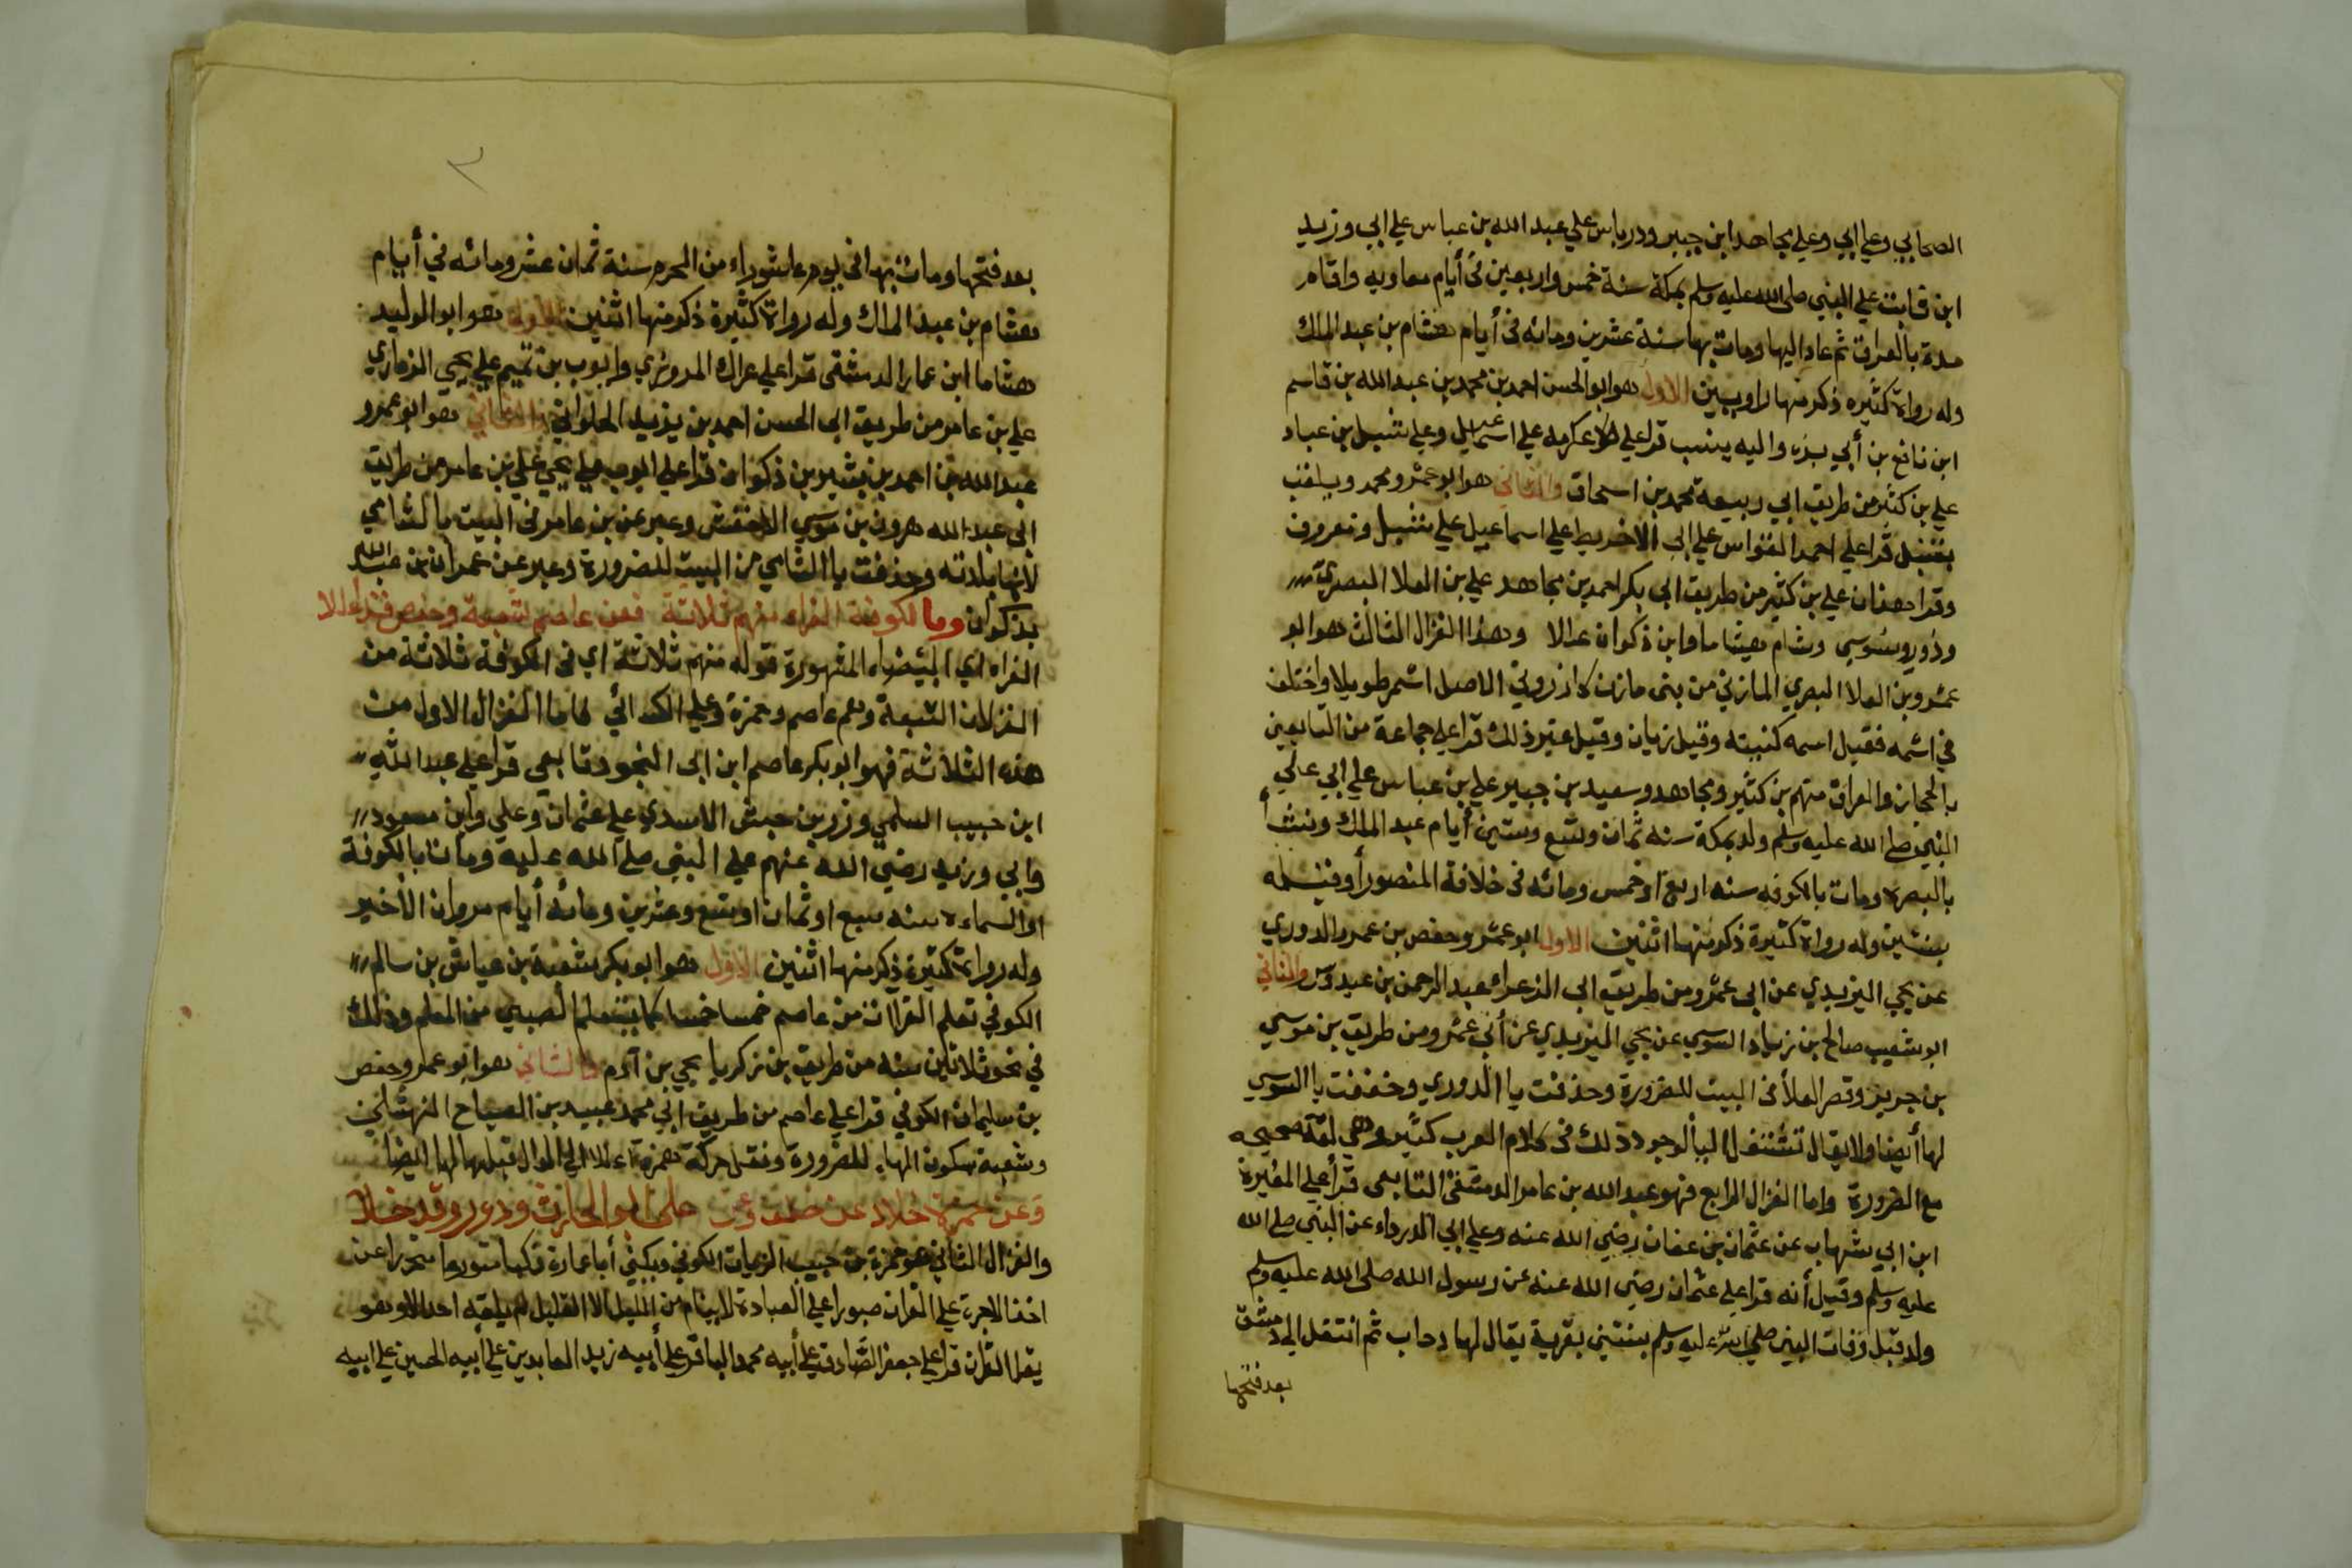 الصحابي وعلي ابي وعلي مجاهد ابن جبير ودرباس علي عبد الله بن عباس علي ابي وزيد
ابن ثابت علي النبي صلى الله عليه وسلم بمكة سنة خمس واربعين في أيام معاويه واقام
مدة بالعراق ثم عاد اليها ومات بها سنة عشرين ومائه في أيام هشام بن عبد الملك
وله رواة كثيره ذكر منها راويين الاول هو ابو الحسن احمد بن محمد بن عبد الله بن قاسم
ابن نافع بن أبي بزه واليه ينسب قرا علي عكرمه علي اسماعيل وعلي شبل بن عباد
علي بن كثير من طريق ابي ربيعة محمد بن اسحاق والثاني هو ابو عمرو محمد ويلقب
بقنبل قرا علي احمد القواس علي ابي الاخريط علي اسماعيل علي شبل ومعروف
وقرا هذان علي بن كثير من طريق ابي بكر احمد بن مجاهد علي بن العلا البصري
ودوري وسوسي وشام هشاما وابن ذكوان عدالا وهذا الغزال الثالث هو ابو
عمرو بن العلا البصري المازني من بني مازن كازروني الاصل اسمر طويلا واختلف
في اسمه فقيل اسمه كنيته وقيل زبان وقيل غير ذلك قرا علي جماعة من التابعين
بالحجاز والعراق منهم بن كثير ومجاهد وسعيد بن جبير علي بن عباس علي ابي علي
النبي صلى الله عليه وسلم ولد بمكة سنه ثمان وتسع وستين أيام عبد الملك ونشأ
بالبصره ومات بالكوفه سنه اربع او خمس ومائه في خلافة المنصور أو قبله
بسنتين وله رواة كثيرة ذكر منها اثنين الاول ابو عمرو حفص بن عمر الدوري
عن يحي اليزيدي عن ابي عمرو من طريق ابي الزعراء عبد الرحمن بن عبدوس والثاني
ابو شعيب صالح بن زياد السوسي عن يحي اليزيدي عن أبي عمرو من طريق بن موسي
بن جرير وقصر العلا في البيت للضرورة وحذفت يا الدوري وخففت يا السوسي
لها أيضا ولا يقال تشتغل اليا لوجود ذلك في كلام العرب كثير وهي لغة صحيحه
مع الضرورة واما الغزال الرابع فهو عبد الله بن عامر الدمشقي التابعي قرأ علي المغيرة
ابن ابي شهاب عن عثمان بن عفان رضي الله عنه وعلي ابي الدرداء عن النبي صلى الله
عليه وسلم وقيل أنه قرا علي عثمان رضي الله عنه عن رسول الله صلى الله عليه وسلم
ولد قبل وفات النبي صلي الله عليه وسلم بسنتين بقرية يقال لها رحاب ثم انتقل الي دمشق
بعد فتحها
٣
بعد فتحها ومات بها في يوم عاشوراء من المحرم سنة ثمان عشر ومائه في أيام
هشام بن عبد الملك وله رواة كثيرة ذكر منها اثنين الاول هو ابو الوليد
هشاما ابن عمار الدمشقي قرا علي عراك المروزي وايوب بن تميم علي يحي الذماري
علي بن عامر من طريق ابي الحسن احمد بن يزيد الحلواني والثاني هو ابو عمرو
عبد الله بن احمد بن بشير بن ذكوان قرا علي ايوب علي يحي علي بن عامر من طريق
ابي عبد الله هرون بن موسي الاخفش وعبر عن بن عامر في البيت بالشامي
لانها بلدته وحذفت يا الشامي من البيت للضرورة وعبر عن عمران بن عبد الله
بذكوان وما لكوفة الغراء منهم ثلاثة فعن عاصم شعبة وحفص قد اعلا
الغراء اي البيضاء المشهورة قوله منهم ثلاثة اي في الكوفة ثلاثة من
الغزلان السبعة وهم عاصم وحمزة وعلي الكسائي فاما الغزال الاول من
هذه الثلاثة فهو ابو بكر عاصم ابن ابي النجود تابعي قرا علي عبد الله
ابن حبيب السلمي وزر بن حبش الاسدي علي عثمان وعلي وابن مسعود
وابي وزيد رضي الله عنهم علي النبي صلى الله عليه ومات بالكوفة
او السماوه سنه سبع او ثمان او تسع وعشرين ومائه أيام مروان الأخير
وله رواة كثيرة ذكر منها اثنين الاول هو ابو بكر شعبة بن عياش بن سالم
الكوفي تعلم القران من عاصم خمسا خمسا كما يتعلم الصبي من المعلم وذلك
في نحو ثلاثين سنه من طريق بن زكريا يحي بن آدم والثاني هو ابو عمر وحفص
بن سليمان الكوفي قرا علي عاصم من طريق ابي محمد عبيد بن الصباح النهشلي
وشعبة بسكون الهاء للضرورة ونقل حركة همزة اعلا الي الدال قبلها لها ايضا
وعن حمزة خلاد عن خلف وعن علي ابو الحارث ودور وقد خلا
والغزال الثاني هو حمزة بن حبيب الزيات الكوفي ويكني أبا عمارة كما متورعا متحرزا عن
اخذ الاجرة علي القران صبورا علي العبادة لا ينام من الليل الا القليل لم يلقه احد الا وهو
يقرا القران قرا علي جعفر الصادق علي أبيه محمد الباقر علي أبيه زيد العابدين علي أبيه الحسين علي ابيه